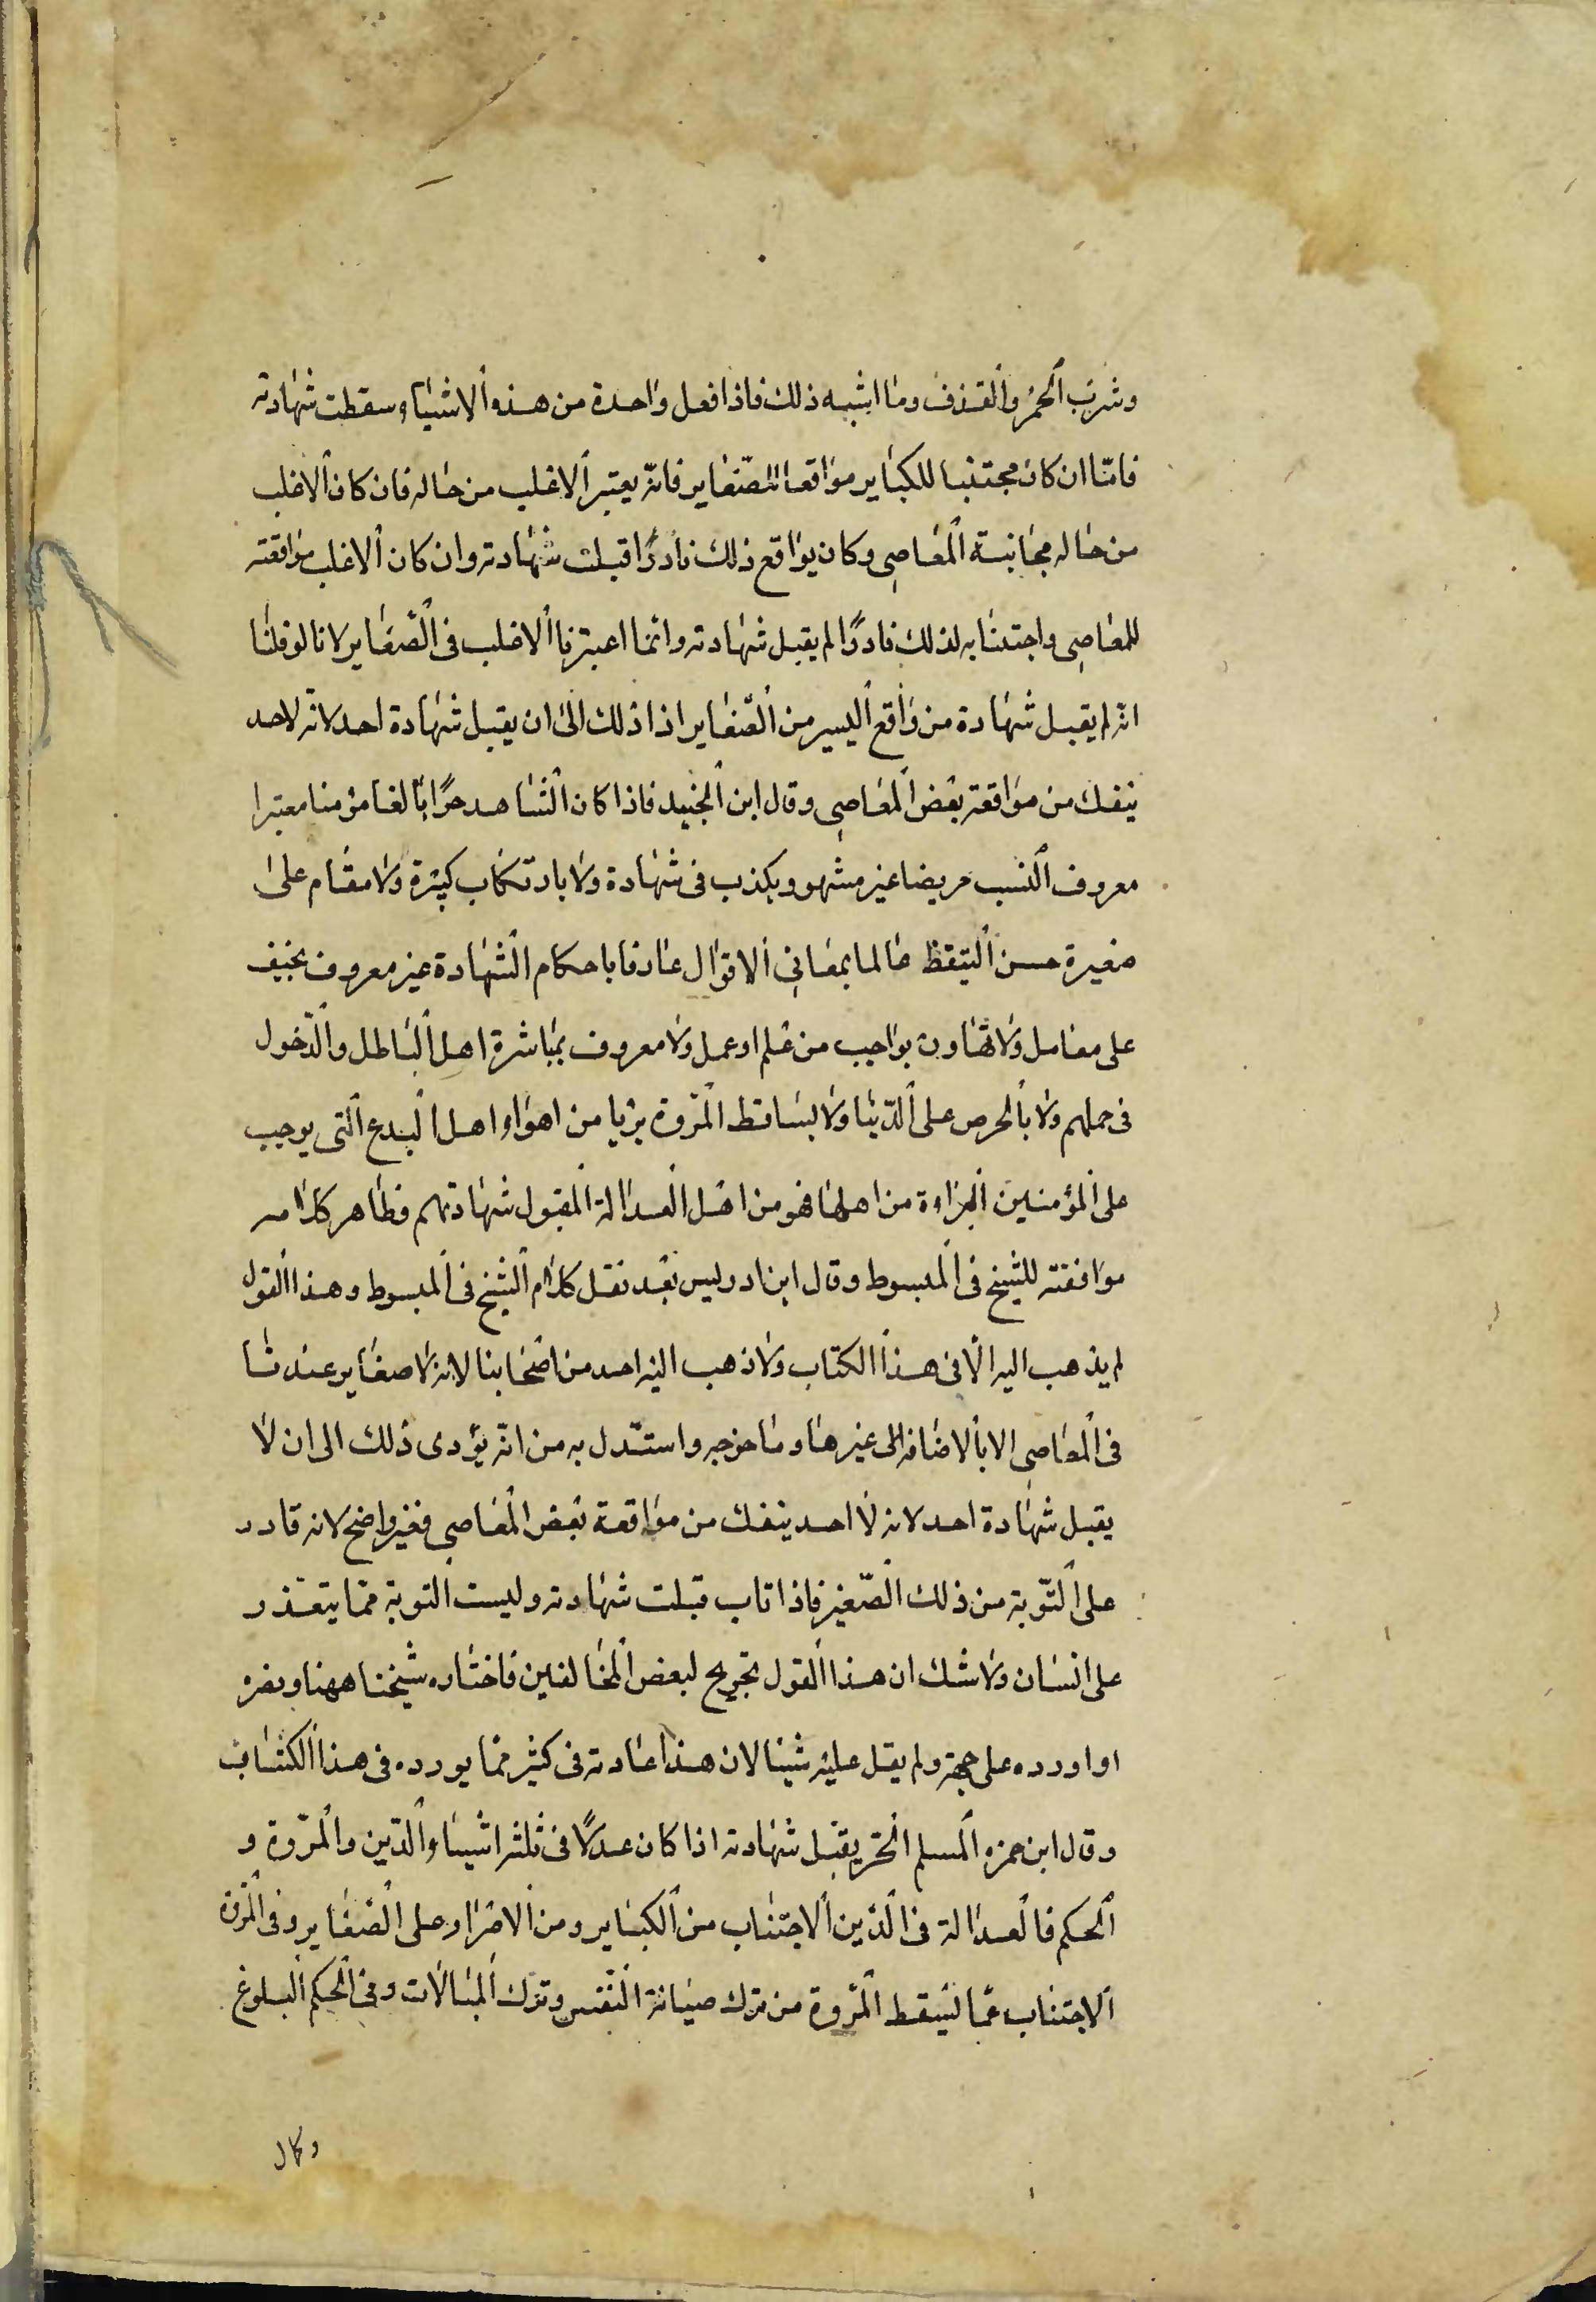 وشرب الخمر والقذف وما اشبه ذلك فاذا فعل واحدة من هذه الاشياء سقطت شهادته
فامّا ان كان مجتنبا للكباير مواقعا للصّغاير فانّه يعتبر الاغلب من حاله فان كان الاغلب
من حاله مجانبة المعاصى وكان يواقع ذلك نادرًا قبلت شهادته وان كان الاغلب مواقعته
للمعاصى واجتنابه لذلك نادرًا لم يقبل شهادته وانما اعتبرنا الاغلب فى الصّغاير لانا لو قلنا
انه لم يقبل شهادة من واقع اليسير من الصّغاير اذا ذلك الى ان يقبل شهادة احد لانه لا احد
ينفك من مواقعة بعض المعاصى وقال ابن الجنيد فاذا كان الشاهد حرًا بالغا مؤمنا معتبرا
معروف النسب مريضا غير مشهور بكذب فى شهادة ولا بارتكاب كبيرة ولا مقام على
صغيرة حسن التيقظ عالما بمعانى الاقوال عارفا باحكام الشهادة غير معروف بحيف
على معامل ولا تهاون بواجب من علم او عمل ولا معروف بمباشرة اهل الباطل والدّخول
فى جملهم ولا بالحرص على الدّنيا ولا بساقط المروة بريا من اهواء اهل البدع التى يوجب
على المؤمنين البراءة من اهلها فهو من اهل العدالة المقبول شهادتهم فظاهر كلامه
موافقته للشيخ فى المبسوط وقال ابن ادريس بعد نقل كلام الشيخ فى المبسوط وهذا القول
لم يذهب اليه الا فى هذا الكتاب ولا ذهب اليه احد من اصحابنا لانه لا صغاير عندنا
فى المعاصى الا بالاضافه الى غيرها وما خرجه واستدل به من انّه يؤدى ذلك الى ان لا
يقبل شهادة احد لانه لا احد ينفك من مواقعة بعض المعاصى فغير واضح لانه قادر
على التّوبة من ذلك الصّغير فاذا تاب قبلت شهادته وليست التوبة ممّا يتعذر
على انسان ولا شك ان هذا القول تخريج لبعض المخالفين فاختاره شيخنا ههنا ونصره
او اورده على جهته ولم يقل عليه شيئا لان هذا عادته فى كثير ممّا يورده فى هذا الكتاب
وقال ابن حمزه المسلم الحرّ يقبل شهادته اذا كان عدلًا فى ثلثه اشياء الدّين والمرّوة و
الحكم فالعدالة فى الدّين الاجتناب من الكباير ومن الاصرار على الصّغاير وفى المروة
الاجتناب عمّا يسقط المرّوة من ترك صيانة النّفس وترك المبالات وفى الحكم البلوغ
وكمال